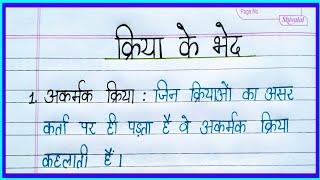 Page No
Shivalal
क्रिया के भेद
1. अकर्मक क्रिया : जिन क्रियाओं का असर
कर्ता पर ही पड़ता है वे अकर्मक क्रिया
कहलाती हैं।